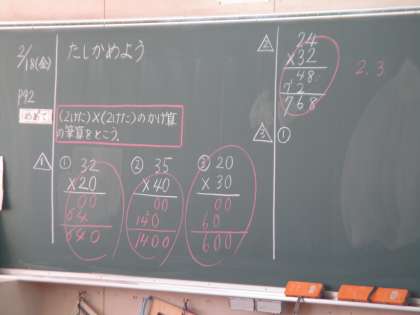 2/18(金)
たしかめよう
P92
めあて
(2けた)×(2けた)のかけ算
の筆算をとこう。
1
① 32
×20
00
64
640
② 35
×40
00
140
1400
③ 20
×30
00
60
600
2
24
×32
48
72
768
2.3
3 ①